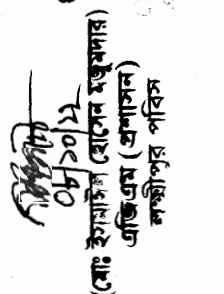 ০৮/১০/২১
(মোঃ ইসমাঈল হোসেন মজুমদার)
এজিএম (প্রশাসন)
লক্ষ্মীপুর পবিস